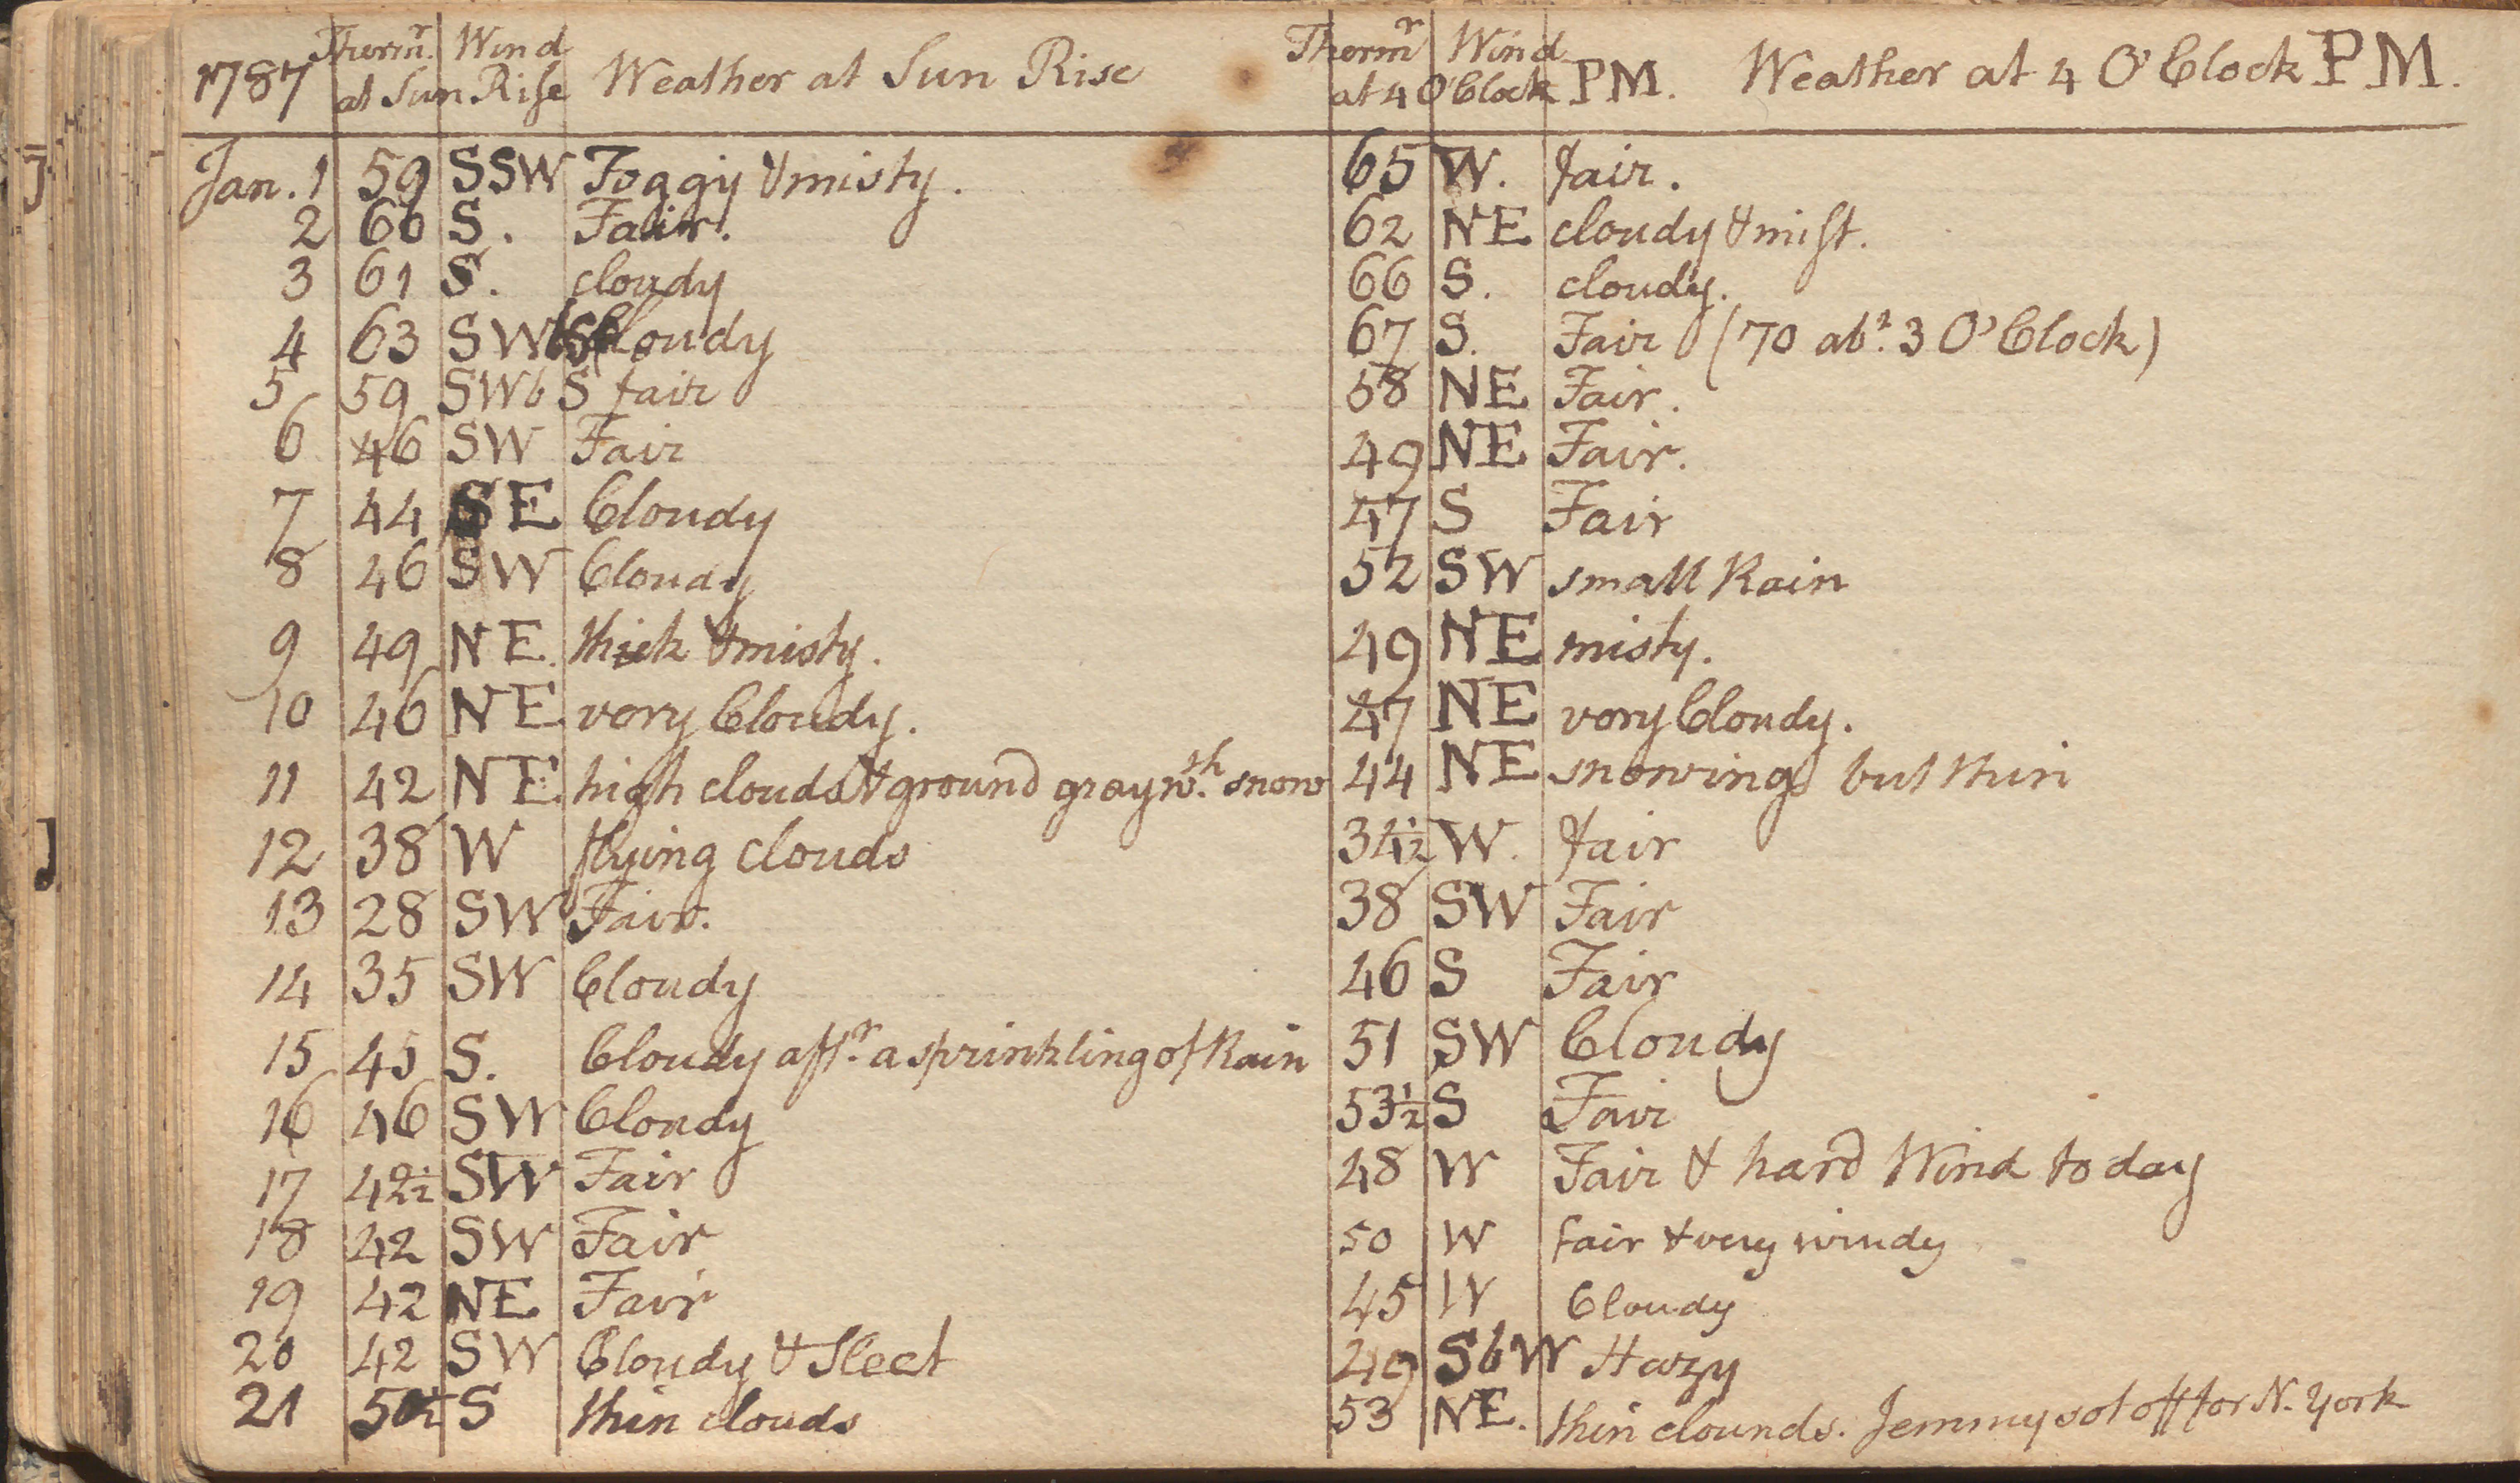 1787 Thermr. at Sun Rise Wind Weather at Sun Rise Thermr at 4 O'Clock PM. Wind Weather at 4 O'Clock PM.
Jan. 1 59 SSW Foggy & misty. 65 W. fair.
2 60 S. Fair. 62 NE cloudy & mist.
3 61 S. cloudy 66 S. cloudy.
4 63 SWbS Cloudy 67 S. Fair (70 abt. 3 O'Clock)
5 59 SWb S fair 58 NE Fair.
6 46 SW Fair 49 NE Fair.
7 44 SE Cloudy 47 S Fair
8 46 SW Cloudy 52 SW small Rain
9 49 NE. thick & misty. 49 NE misty.
10 46 NE very Cloudy. 47 NE very Cloudy.
11 42 NE. high clouds & ground gray wth. snow 44 NE snowing but thin
12 38 W flying clouds 34½ W. fair
13 28 SW Fair. 38 SW Fair
14 35 SW Cloudy 46 S Fair
15 45 S. Cloudy aftr. a sprinkling of Rain 51 SW Cloudy
16 46 SW Cloudy 53½ S Fair
17 42½ SW Fair 48 W Fair & hard Wind to day
18 42 SW Fair 50 W fair & very windy
19 42 NE Fair 45 W Cloudy
20 42 SW Cloudy & Sleet 49 SbW Hazy
21 50½ S thin clouds 53 NE. thin clounds. Jemmy sot off for N. York